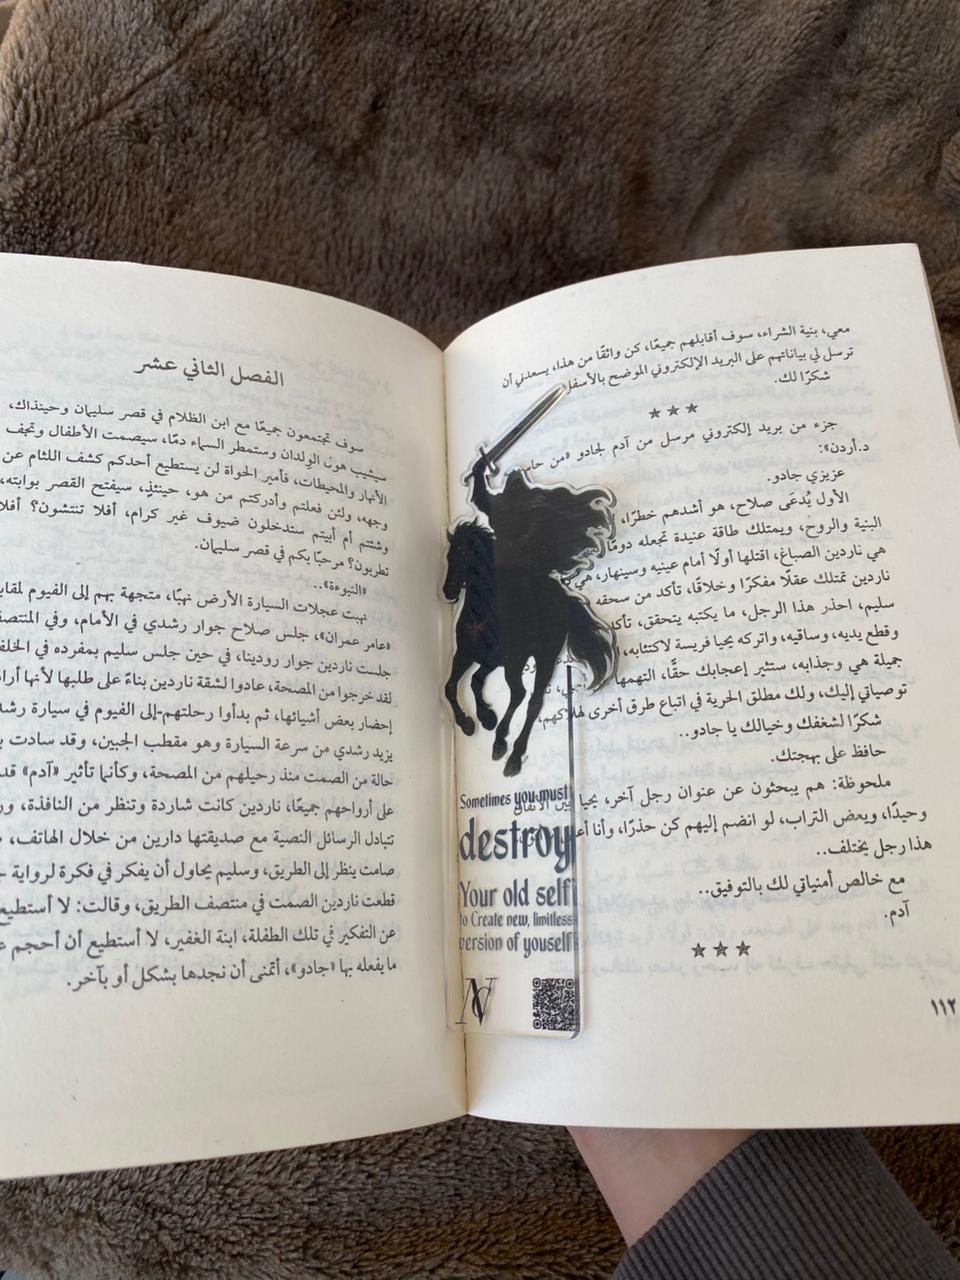 معي، بنية الشراء، سوف أقابلهم جميعًا، كن واثقًا من هذا، يسعدني أن
ترسل لي بياناتهم على البريد الإلكتروني الموضح بالأسفل
شكرًا لك.
***
جزء من بريد إلكتروني مرسل من آدم لجادو «من
د.أردن»:
عزيزي جادو.
الأول يُدعَى صلاح، هو أشدهم خطرًا،
البنية والروح، ويمتلك طاقة عنيدة تجعله دومًا
هي ناردين الصباغ، اقتلها أولًا أمام عينيه وسينهار، هي
ناردين تمتلك عقلًا مفكرًا وخلاقًا، تأكد من سحقه
سليم، احذر هذا الرجل، ما يكتبه يتحقق، تأكد
وقطع يديه، وساقيه، واتركه يحيا فريسة لاكتئابه،
جميلة هي وجذابه، ستثير إعجابك حقًّا، التهمها
توصياتي إليك، ولك مطلق الحرية في اتباع طرق أخرى لهلاكهم،
شكرًا لشغفك وخيالك يا جادو..
حافظ على بهجتك.
ملحوظة: هم يبحثون عن عنوان رجل آخر، يحيا بين الأنفاق
وحيدًا، وبعض التراب، لو انضم إليهم كن حذرًا، وأنا
هذا رجل يختلف..
مع خالص أمنياتي لك بالتوفيق..
آدم.
***
١١٢
الفصل الثاني عشر
سوف تجتمعون جميعًا مع ابن الظلام في قصر سليمان وحينذاك،
سيشيب هول الولدان وستمطر السماء دمًا، سيصمت الأطفال وتجف
الأنهار والمحيطات، فأمير الحواة لن يستطيع أحدكم كشف اللثام عن
وجهه، ولئن فعلتم وأدركتم من هو، حينئذٍ، سيفتح القصر بوابته،
وشئتم أم أبيتم ستدخلون ضيوف غير كرام، أفلا تنتشون؟ أفلا
تطربون؟ مرحبًا بكم في قصر سليمان.
«النبوءة»..
نهبت عجلات السيارة الأرض نهبًا، متجهة بهم إلى الفيوم
«عامر عمران»، جلس صلاح جوار رشدي في الأمام، وفي
جلست ناردين جوار رودينا، في حين جلس سليم بمفرده في
لقد خرجوا من المصحة، عادوا لشقة ناردين بناءً على طلبها لأنها
إحضار بعض أشيائها، ثم بدأوا رحلتهم-إلى الفيوم في سيارة
يزيد رشدي من سرعة السيارة وهو مقطب الجبين، وقد سادت
حالة من الصمت منذ رحيلهم من المصحة، وكأنما تأثير «آدم»
على أرواحهم جميعًا، ناردين كانت شاردة وتنظر من النافذة،
تتبادل الرسائل النصية مع صديقتها دارين من خلال الهاتف،
صامت ينظر إلى الطريق، وسليم يحاول أن يفكر في فكرة لرواية
قطعت ناردين الصمت في منتصف الطريق، وقالت: لا أستطيع
عن التفكير في تلك الطفلة، ابنة الغفير، لا أستطيع أن أحجم
ما يفعله بها «جادو»، أتمنى أن نجدها بشكل أو بآخر.
Sometimes you must
destroy
Your old self
to Create new, limitless
version of youself